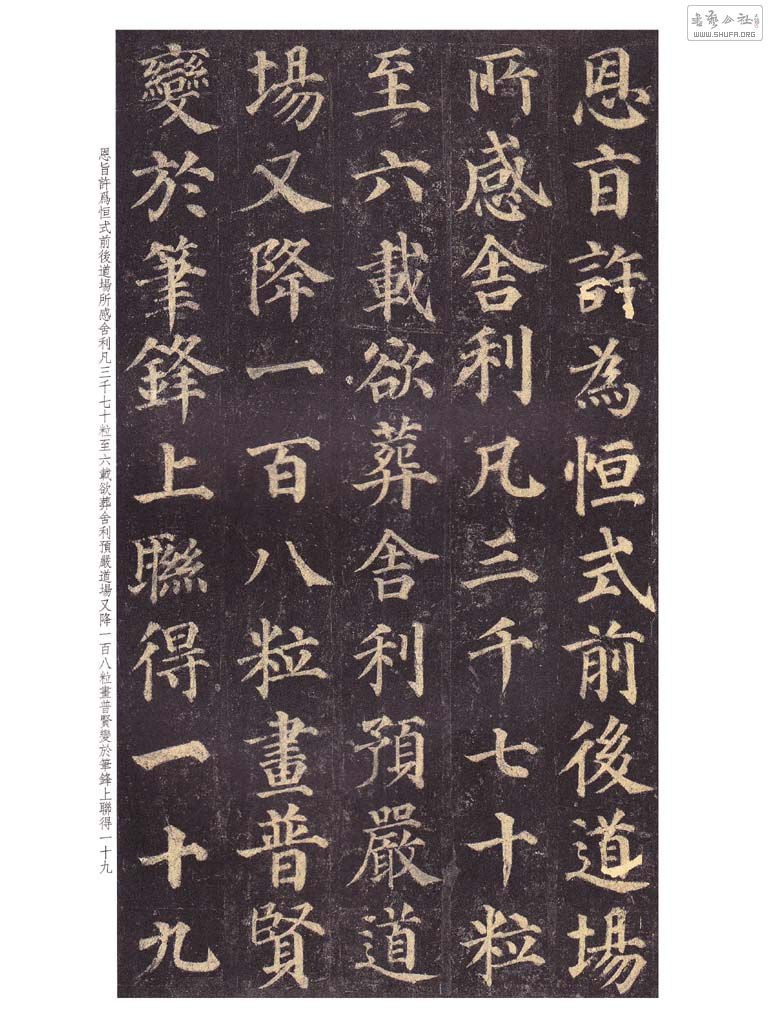 書藝公社
WWW.SHUFA.ORG
恩旨許為恒式前後道場
所感舍利凡三千七十粒
至六載欲葬舍利預嚴道
場又降一百八粒畫普賢
變於筆鋒上聯得一十九
恩旨許爲恒式前後道場所感舍利凡三千七十粒至六載欲葬舍利預嚴道場又降一百八粒畫普賢變於筆鋒上聯得一十九